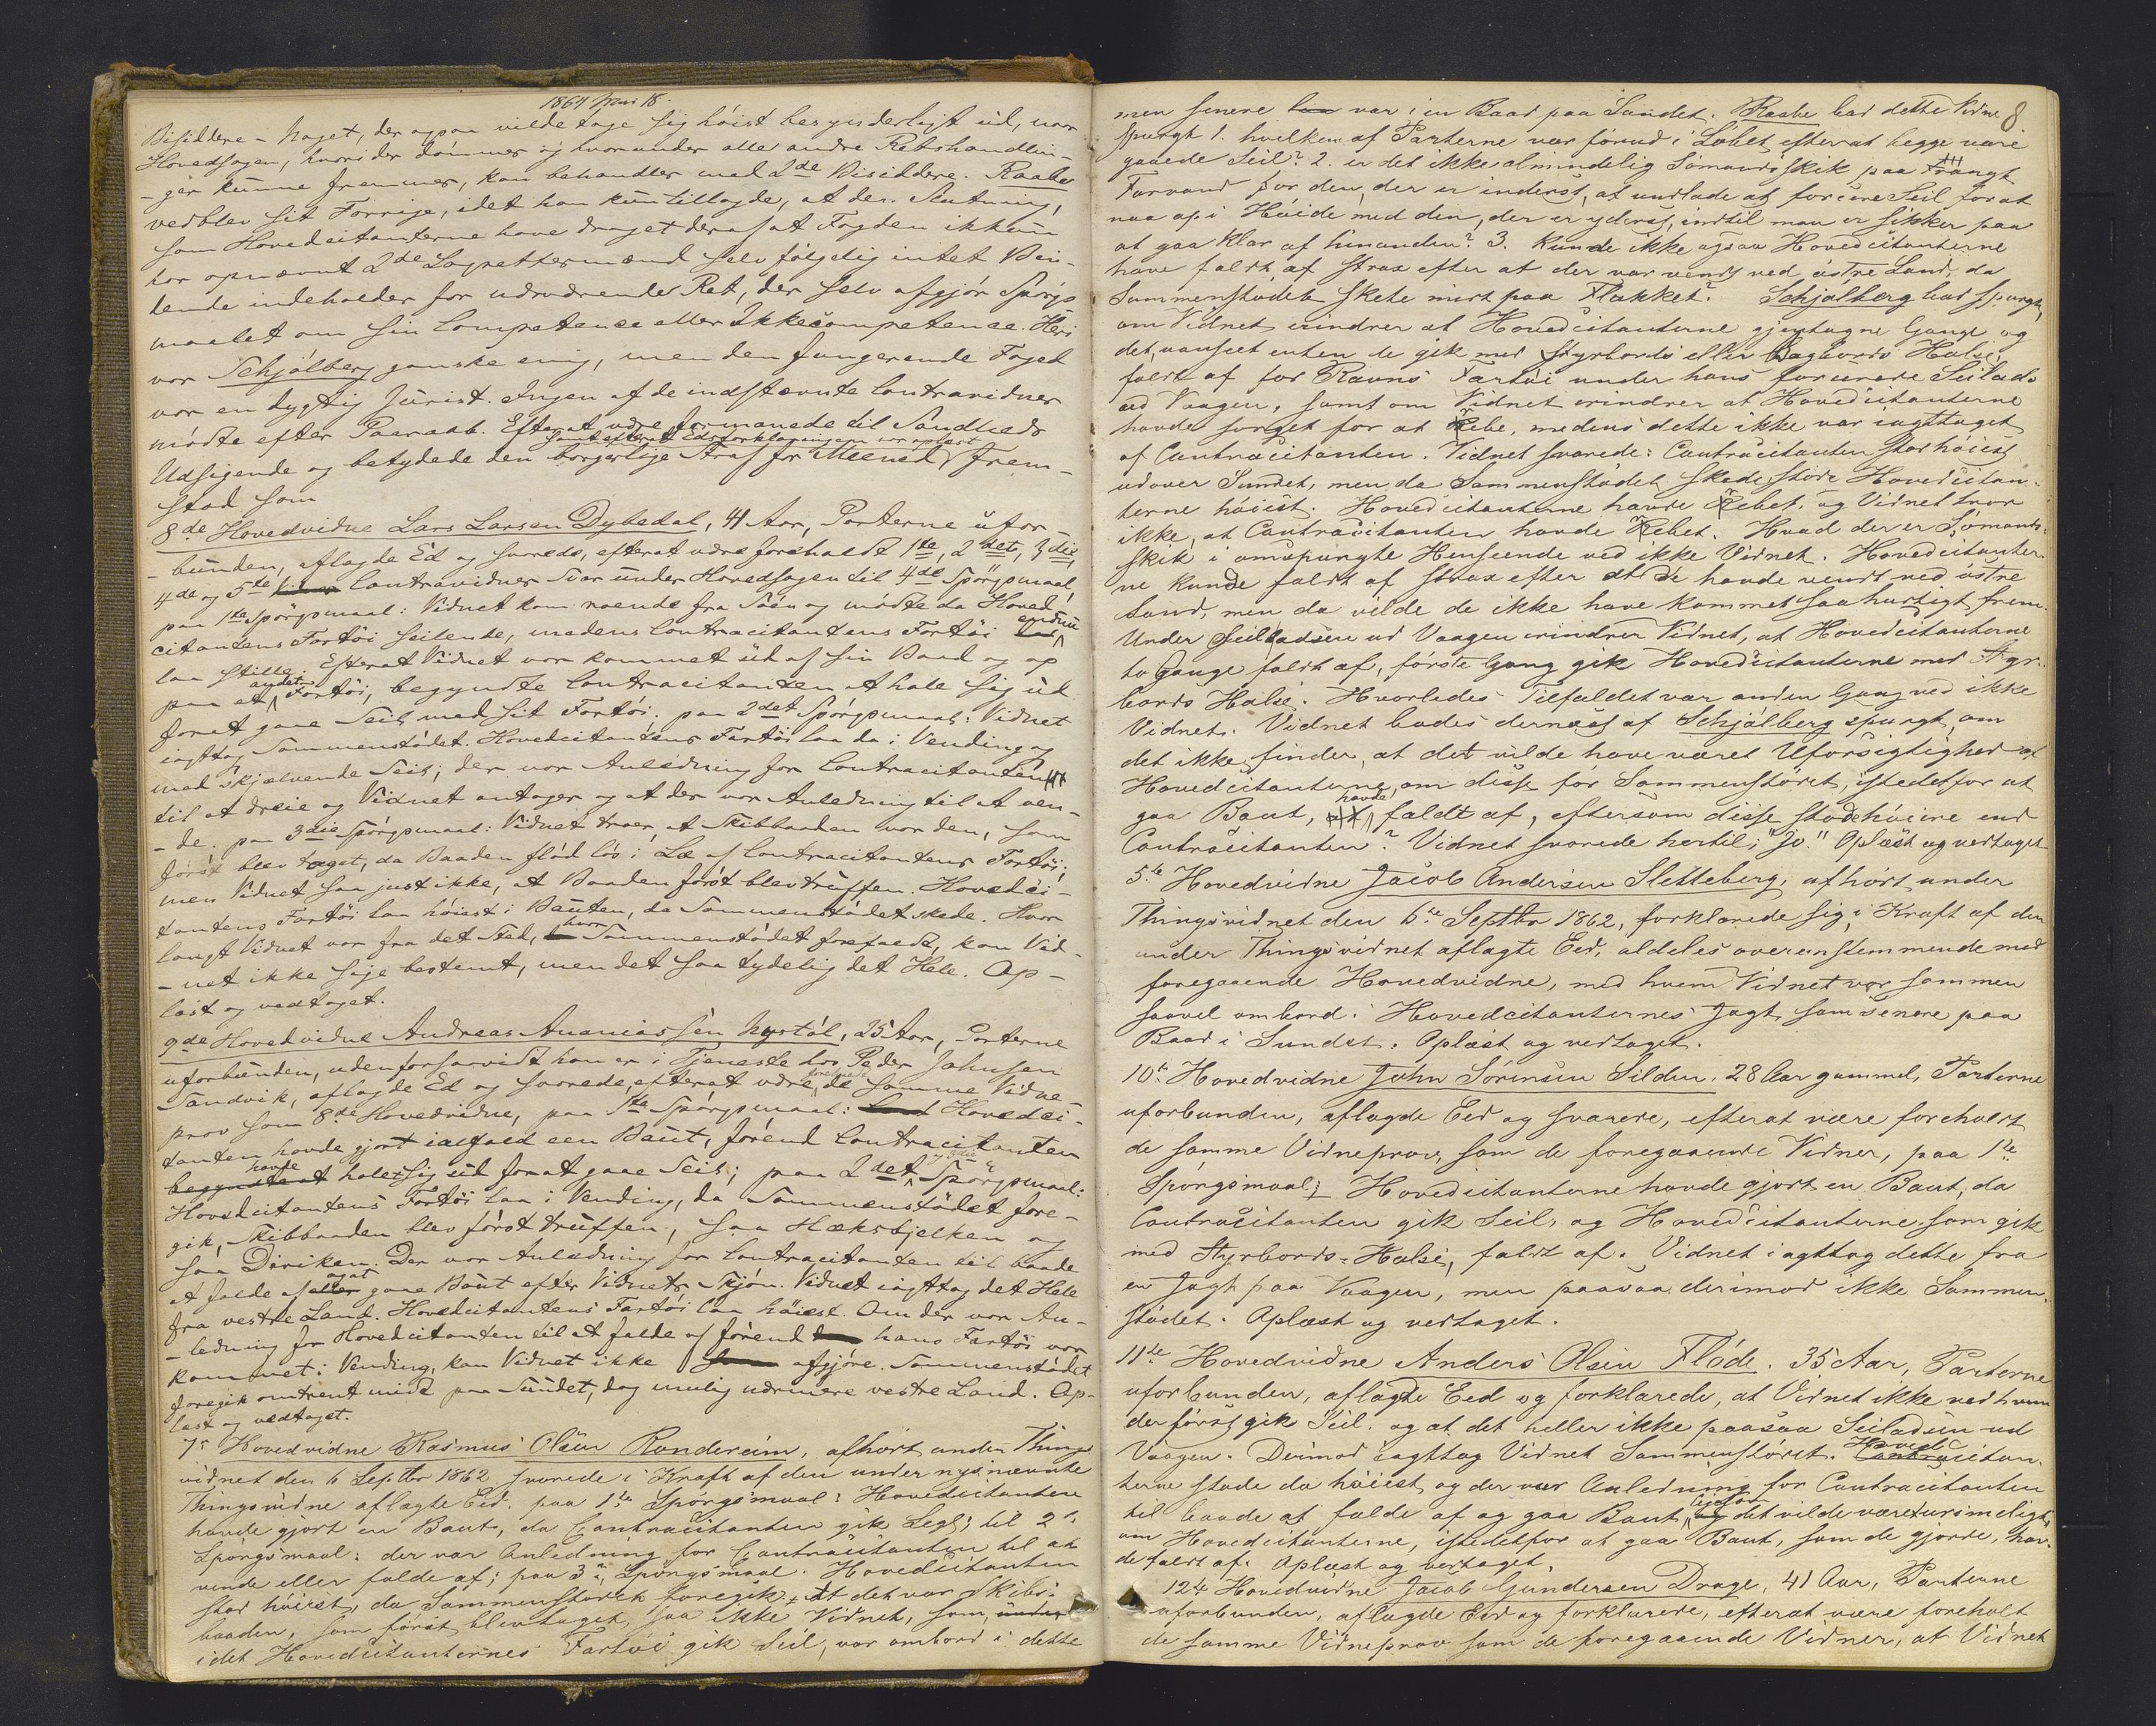 1864 Juni 18.
Bisiddere – Noget, der ogsaa vilde tage sig höist besynderligt ud, naar
Hovedsagen, hvori der dömmes og hvorunder alle andre Retshandlin-
-ger kunne fremmes, kan behandles med 2de Bisiddere. Raabe
vedblev sit Forrige, idet han kun tillagde, at den Slutning,
som Hovedcitanterne have draget deraf at Fogden ikkun
har opnævnt 2de Lagrettesmænd selvfölgelig intet Bin-
dende indeholder for nærværende Ret, der selv afgjör Spörgs
maalet om sin Competence eller Ikkecompetence. Heri
var Schjölberg ganske enig, men den fungerende Foged
var en dygtig Jurist. Ingen af de indstævnte Contravidner
mödte efter Paaraab. Efterat være formanede til Sandheds
samt efterat Edsforklaringen var oplæst
Udsigende og betydede den borgerlige Straf for Meened frem-
stod som
8de Hovedvidne Lars Larsen Dybedal, 41 Aar, Parterne ufor-
-bunden, aflagde Ed og svarede, efterat være foreholdt 1ste, 2det, 3die,
4de og 5te Contravidners Svar under Hovedsagen til 4de Spörgsmaal,
paa 1ste Spörgsmaal: Vidnet kom roende fra Söen og mödte da Hoved-
citantens Fartöi seilende, medens Contracitantens Fartöi endnu
laa stille. Efterat Vidnet var kommet ud af sin Baad og op
paa et andet Fartöi, begyndte Contracitanten at hale sig ud
forat gaae Seil med sit Fartöi. paa 2det Spörgsmaal: Vidnet
iagttog Sammenstödet. Hovedcitantens Fartöi laa da i Vending og
med skjælvende Seil; der var Anledning for Contracitanten
til at dreie og Vidnet antager og at der var Anledning til at ven-
-de. paa 3die Spörgsmaal: Vidnet troer, at Skibbaaden var den, som
först blev taget, da Baaden flöd lös i Læ af Contracitantens Fartöi;
men Vidnet saa just ikke, at Baaden först blev truffen. Hovedci-
tantens Fartöi laa höiest i Bauten, da Sammenstödet skede. Hvor
langt Vidnet var fra det Sted, hvor Sammenstödet forefaldt, kan Vid-
-net ikke sige bestemt, men det saa tydelig det Hele. Op-
læst og vedtaget.
9de Hovedvidne Andreas Ananiassen Nystöl, 25 Aar, Parterne
uforbunden, uden forsaavidt han er i Tjeneste hos Peder Johnsen
Sandvik, aflagde Ed og svarede, efterat være foreholdt de samme Vidne-
prov som 8de Hovedvidne, paa 1ste Spörgsmaal: Hovedci-
tanten havde gjort ialfald een Baut, förend Contracitanten
havde halet sig ud forat gaae Seil; paa 2det og 3die Spörgsmaal:
Hovedcitantens Fartöi laa i Vending, da Sammenstödet fore-
gik, Skibbaaden blev först truffen, saa Hæksbjelken og
saa Diriken. Der var Anledning for Contracitanten til baade
at falde af og at gaae Baut efter Vidnets Skjön. Vidnet iagttog det Hele
fra vestre Land. Hovedcitantens Fartöi laa höiest. Om der var An-
-ledning for Hovedcitanten til at falde af förend hans Fartöi var
kommet i Vending, kan Vidnet ikke afgjöre. Sammenstödet
foregik omtrent midt paa Sundet, dog mulig nærmere vestre Land. Op-
læst og vedtaget.
7de Hovedvidne Rasmus Olsen Rundereim, afhört under Things
vidnet den 6 Septbr 1862 svarede i Kraft af den under nysnævnte
Thingsvidne aflagte Eed. paa 1ste Spörgsmaal: Hovedcitanten
havde gjort en Baut, da Contracitanten gik Seil; til 2det
Spörgsmaal: der var Anledning for Contracitanten til at
vende eller falde af; paa 3die Spörgsmaal. Hovedcitanten
stod höiest, da Sammenstödet foregik. At det var Skibs-
baaden, som först blev taget, saa ikke Vidnet, som,
idet Hovedcitanternes Fartöi gik Seil, var ombord i dette
8
men senere var i en Baad paa Sundet. Raabe bad dette Vidne
spurgt 1. hvilken af Parterne var forud i Löbet, efterat begge vare
gaaede Seil? 2. er det ikke almindelig Sömandsskik paa trangt
Farvand for den, der er inderst, at undlade at forcere Seil for at
naa op i Höide med den, der er yderst, indtil man er sikker paa
at gaa klar af hinanden? 3. Kunde ikke ogsaa Hovedcitanterne
have faldt af strax efter at der var vendt ved östre Land, da
Sammenstödet skete midt paa Flakket? Schjölberg bad spurgt,
om Vidnet erindrer at Hovedcitanterne gjentagne Gange og
det, uanseet enten de gik med Styrbords eller Bagbords Halse,
faldt af for Ravns Fartöi under hans forcerede Seilads
ud Vaagen, samt om Vidnet erindrer at Hovedcitanterne
havde sörget for at rebe, medens dette ikke var iagttaget
af Contracitanten. Vidnet svarede: Contracitanten stod höiest
udover Sundet, men da Sammenstödet skede stode Hovedcitan-
terne höiest. Hovedcitanterne havde rebet, og Vidnet troer
ikke, at Contracitanten havde rebet. Hvad der er Sömands-
skik i omspurgte Henseende ved ikke Vidnet. Hovedcitanter-
ne kunde faldt af strax efter at de havde vendt ved östre
Land, men da vilde de ikke have kommet saa hurtigt frem.
Under Seiladsen ud Vaagen erindrer Vidnet, at Hovedcitanterne
to Gange faldt af, förste Gang gik Hovedcitanterne med Styr-
bords Halse. Hvorledes Tilfaldet var anden Gang ved ikke
Vidnet. Vidnet bades dernæst af Schjölberg spurgt, om
det ikke finder, at det vilde have været Uforsigtighed af
Hovedcitanterne, om disse för Sammenstödet, istedetfor at
gaa Baut, havde faldt af, eftersom disse stode höiere end
Contracitanten? Vidnet svarede hertil; "Jo." Oplæst og vedtaget
5te Hovedvidne Jacob Andersen Sletteberg, afhört under
Thingsvidnet den 6te Septbr 1862, forklarede sig, i Kraft af den
under Thingsvidnet aflagte Eed, aldeles overenstemmende med
foregaaende Hovedvidne, med hvem Vidnet var sammen
saavel ombord i Hovedcitanternes Jagt, som senere paa
Baad i Sundet. Oplæst og vedtaget.
10de Hovedvidne John Sörensen Silden, 28 Aar gammel, Parterne
uforbunden, aflagde Eed og svarede, efterat være foreholdt
de samme Vidneprov, som de foregaaende Vidner, paa 1ste
Spörgsmaal; Hovedcitanterne havde gjort en Baut, da
Contracitanten gik Seil, og Hovedcitanterne, som gik
med Styrbords-Halse, faldt af. Vidnet iagttog dette fra
en Jagt paa Vaagen, men paasaa derimod ikke Sammen-
stödet. Oplæst og vedtaget.
11te Hovedvidne Anders Olsen Flöde. 35 Aar, Parterne
uforbunden, aflagde Eed og forklarede, at Vidnet ikke ved hvem
der först gik Seil, og at det heller ikke paasaa Seiladsen ud
Vaagen. Derimod iagttog Vidnet Sammenstödet. Hovedcitan-
terne stode da höiest og der var Anledning for Contracitanten
til baade at falde af og gaa Baut, ligesom det vilde være urimeligt,
om Hovedcitanterne, istedetfor at gaa Baut, som de gjorde, hav-
de faldt af. Oplæst og vedtaget.
12te Hovedvidne Jacob Gundersen Drage, 41 Aar, Parterne
uforbunden, aflagde Eed og forklarede, efterat være foreholt
de samme Vidneprov som de foregaaende Vidner, at Vidnet